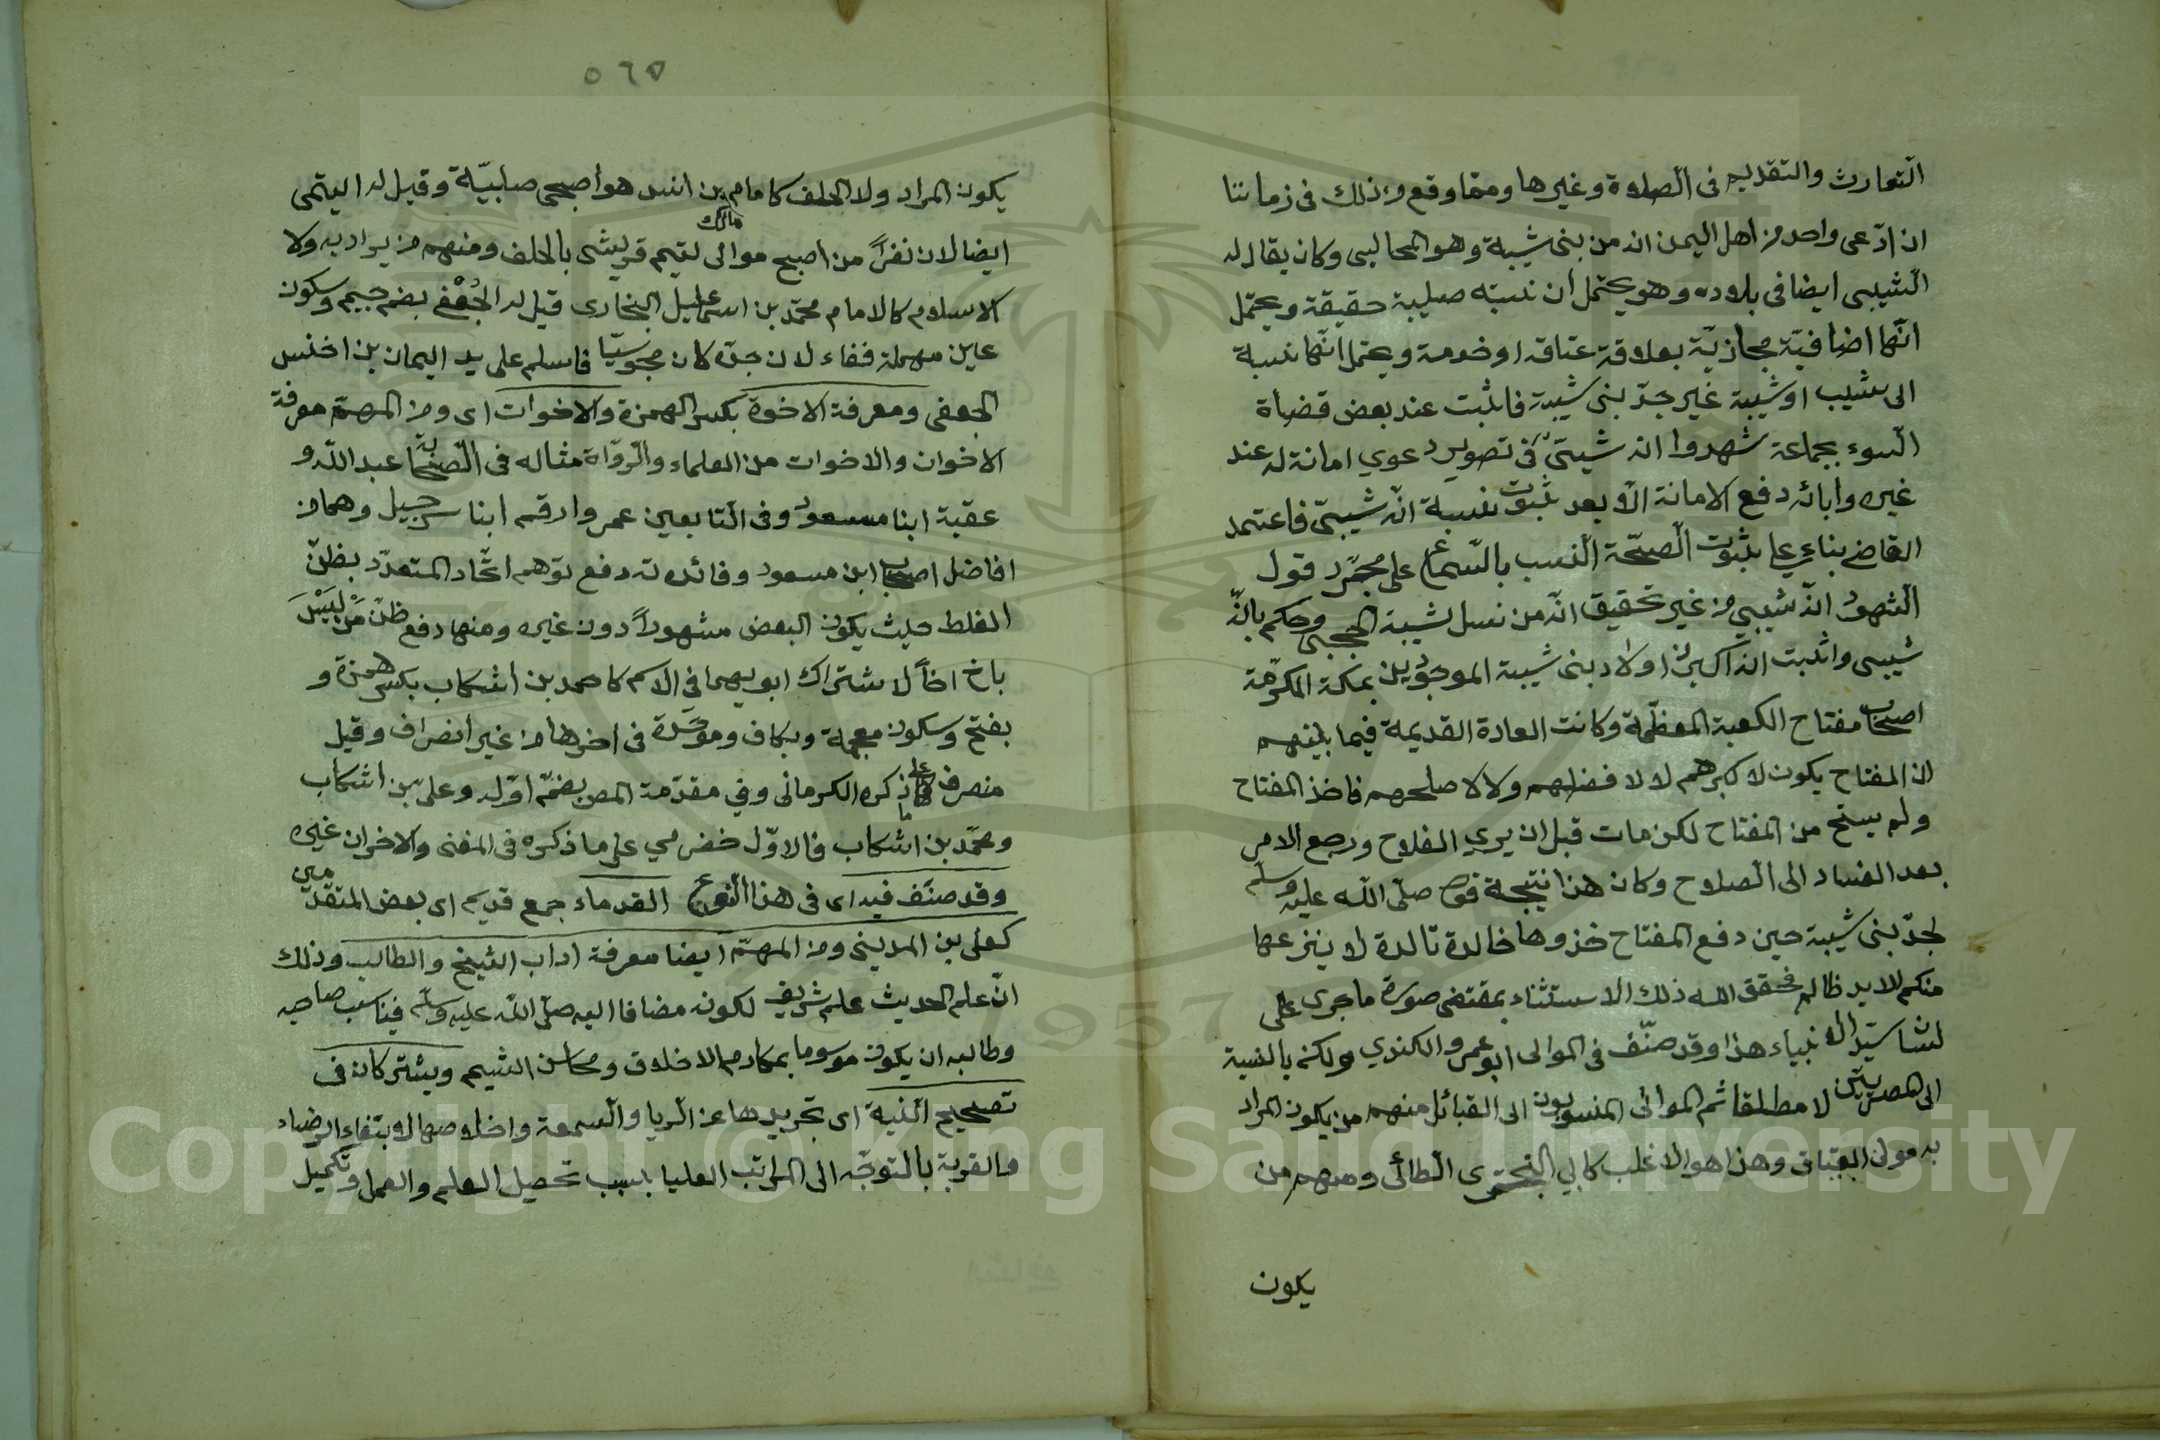 التوارث والتقديم فى الصلوة وغيرها ومما وقع من ذلك فى زماننا
ان ادّعى واحد من اهل اليمن انه من بنى شيبة وهو المحالبى وكان يقال له
الشيبى ايضا فى بلاده وهو يحتمل ان نسبته صليبة حقيقة ويحتمل
انّها اضافيّة مجازيّة بعلاقة عتاقه او خدمة ويحتمل انّها نسبة
الى شيب او شيبة غير جدّ بنى شيبة فاثبت عند بعض قضاة
السوء بجماعة شهدوا انه شيبىّ فى تصوير دعوي امانة له عند
غيره وابائه دفع الامانة الّا بعد ثبوت نسبة انّه شيبىّ فاعتمد
القاضى بناء على ثبوت الصحّة النسب بالسماع على مجرّد قول
الشهود انّه شيبى من غير تحقيق انّه من نسل شيبة الحجبى وحكم بانّه
شيبى واثبت انه اكبر من اولاد بنى شيبة الموجودين بمكة المكرّمة
اصحاب مفتاح الكعبة المعظّمة وكانت العادة القديمة فيما بينهم
ان المفتاح يكون لاكبرهم لا لافضلهم ولا لاصلحهم فاخذ المفتاح
ولم يستح من المفتاح لكن مات قبل ان يري الفلاح ورجع الامر
بعد الفساد الى الصلاح وكان هذا نتيجة قوله صلّى الله عليه وسلّم
لجدّ بنى شيبة حين دفع المفتاح خذوها خالدة تالدة لا ينزعها
منكم للابد ظالم فحقق الله ذلك الاستثناء بمقتضى صورة ما جرى على
لسان سيد الانبياء هذا وقد صنّف فى الموالى ابو عمرو الكندي ولكنه بالنسبة
الى المصريّين لا مطلقا ثم الموالى المنسوبون الى القبائل منهم من يكون المراد
به مولى العتاق وهذا هو الاغلب كابي البخترى الطائى ومنهم من
يكون
٥٦٥
يكون المراد ولا الحلف كامام مالك بن انس هو اصبحى صليبيّة وقيل له التيمى
ايضا لان نفرا من اصبح موالى لتيم قريش بالحلف ومنهم من يراد به ولا
الاسلام كالامام محمّد بن اسماعيل البخارى قيل له الجُعْفى بضم جيم وسكون
عاين مهملة ففاء لان جدّه كان مجوسيّا فاسلم على يد اليمان بن اخنس
الجعفى ومعرفة الاخوة بكسر الهمزة والاخوات اى ومن المهمّ معرفة
الاخوان والاخوات من العلماء والرّواة مثاله فى الصّحابة عبد الله و
عقبة ابنا مسعود وفى التابعين عمرو وارقم ابنا شرحبيل وهما من
افاضل اصحاب ابن مسعود وفائدته دفع توهم اتّحاد المتعدّد بظنّ
الغلط حيث يكون البعض مشهوراً دون غيره ومنها دفع ظنّ من ليس
باخ اخاً لاشتراك ابويهما فى الاسم كاحمد بن اشكاب بكسر همزة و
بفتح وسكون معجمة وبكاف وموحّدة فى اخرها من غير انصراف وقيل
منصرف على ما ذكره الكرمانى وفي مقدّمة المص بضمّ اوّله وعلىّ بن اشكاب
ومحمّد بن اشكاب فالاوّل حضرمي على ما ذكره فى المغنى والاخران غيره
وقد صنّف فيه اى فى هذا النوع القدماء جمع قديم اى بعض المتقدّمين
كعلى بن المدينى ومن المهمّ ايضا معرفة اداب الشيخ والطالب وذلك
انّ علم الحديث علم شريف لكونه مضافا اليه صلّى الله عليه وسلّم فيناسب صاحبه
وطالبه ان يكون موسوما بمكارم الاخلاق ومحاسن الشيم ويشتركان فى
تصحيح النية اى تجريدها عن الريا والسمعة واخلاصها لابتغاء الرضاء
والقربة بالتوجّه الى المراتب العليا بسبب تحصيل العلم والعمل وتكميل
Copyright © King Saud University
1957